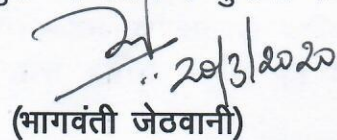 20/3/2020
(भागवंती जेठवानी)